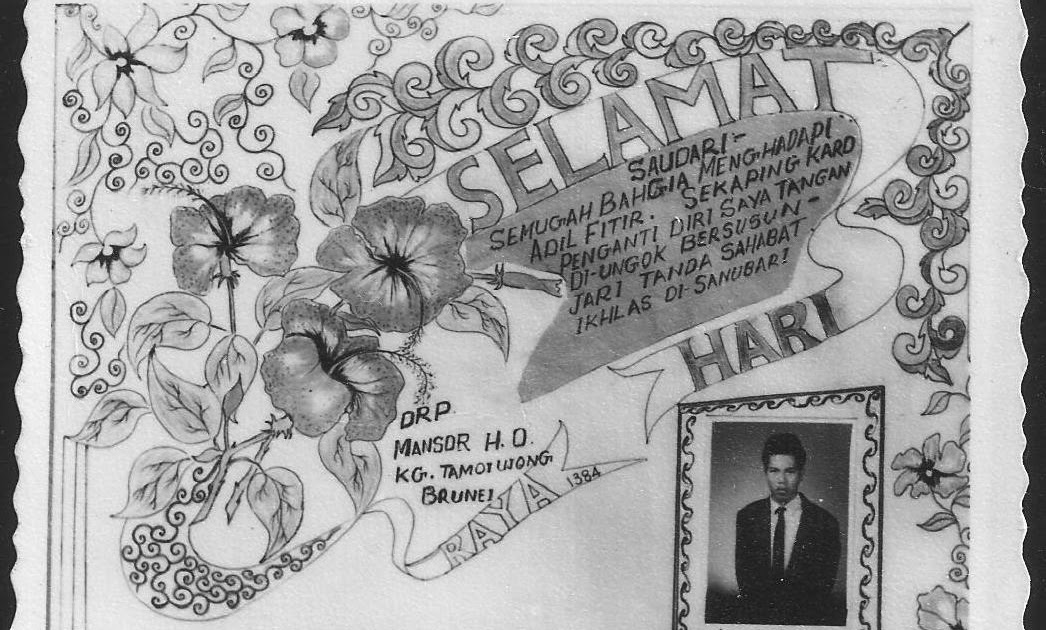 SELAMAT
SAUDARI:-
SEMUGAH BAHGIA MENGHADAPI
ADIL FITIR. SEKAPING KARD
PENGANTI DIRI SAYA TANGAN
DI-UNGOK BERSUSUN-
JARI TANDA SAHABAT
IKHLAS DI-SANUBAR!
HARI
RAYA 1384
DRP.
MANSOR H.O.
KG. TAMOI UJONG
BRUNEI